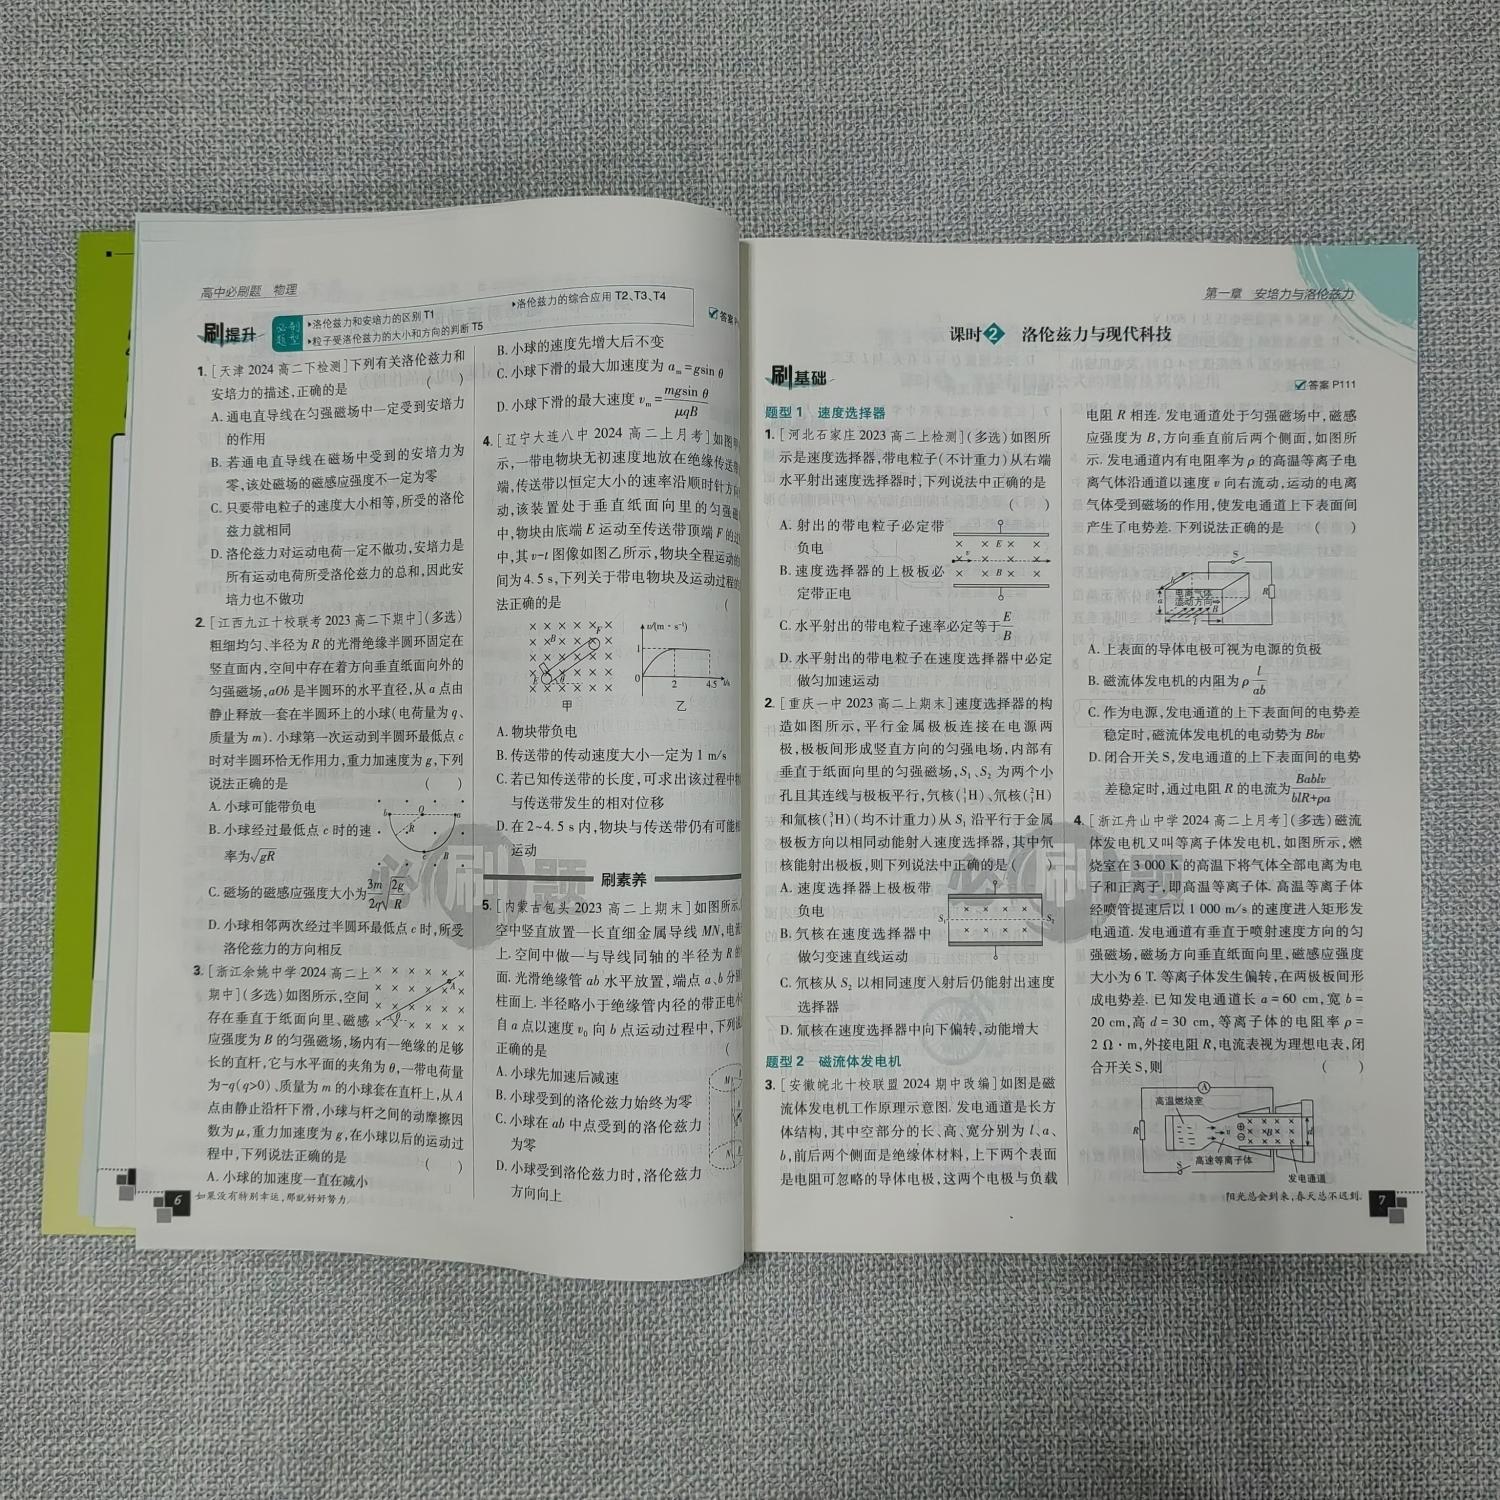 高中必刷题 物理
刷提升
必刷题型
▸洛伦兹力和安培力的区别 T1
▸洛伦兹力的综合应用 T2、T3、T4
▸粒子受洛伦兹力的大小和方向的判断 T5
答案 P
1. [天津 2024 高二下检测]下列有关洛伦兹力和
安培力的描述,正确的是 ( )
A. 通电直导线在匀强磁场中一定受到安培力
的作用
B. 若通电直导线在磁场中受到的安培力为
零,该处磁场的磁感应强度不一定为零
C. 只要带电粒子的速度大小相等,所受的洛伦
兹力就相同
D. 洛伦兹力对运动电荷一定不做功,安培力是
所有运动电荷所受洛伦兹力的总和,因此安
培力也不做功
2. [江西九江十校联考 2023 高二下期中](多选)
粗细均匀、半径为 R 的光滑绝缘半圆环固定在
竖直面内,空间中存在着方向垂直纸面向外的
匀强磁场,aOb 是半圆环的水平直径,从 a 点由
静止释放一套在半圆环上的小球(电荷量为 q、
质量为 m). 小球第一次运动到半圆环最低点 c
时对半圆环恰无作用力,重力加速度为 g,下列
说法正确的是 ( )
A. 小球可能带负电
B. 小球经过最低点 c 时的速
率为√gR
b O a
R
c B
C. 磁场的磁感应强度大小为3m/2q √(2g/R)
D. 小球相邻两次经过半圆环最低点 c 时,所受
洛伦兹力的方向相反
3. [浙江余姚中学 2024 高二上
期中](多选)如图所示,空间
存在垂直于纸面向里、磁感
应强度为 B 的匀强磁场,场内有一绝缘的足够
长的直杆,它与水平面的夹角为 θ,一带电荷量
为-q(q>0)、质量为 m 的小球套在直杆上,从 A
点由静止沿杆下滑,小球与杆之间的动摩擦因
数为 μ,重力加速度为 g,在小球以后的运动过
程中,下列说法正确的是 ( )
A
θ
A. 小球的加速度一直在减小
6 如果没有特别幸运,那就好好努力.
B. 小球的速度先增大后不变
C. 小球下滑的最大加速度为 aₘ=gsin θ
D. 小球下滑的最大速度 vₘ=mgsin θ/μqB
4. [辽宁大连八中 2024 高二上月考]如图甲
示,一带电物块无初速度地放在绝缘传送带
端,传送带以恒定大小的速率沿顺时针方向
动,该装置处于垂直纸面向里的匀强磁
中,物块由底端 E 运动至传送带顶端 F 的过
中,其 v-t 图像如图乙所示,物块全程运动的
间为 4.5 s,下列关于带电物块及运动过程的
法正确的是 (
B F
E θ
甲
v/(m·s⁻¹)
1
0 2 4.5 t/s
乙
A. 物块带负电
B. 传送带的传动速度大小一定为 1 m/s
C. 若已知传送带的长度,可求出该过程中物
与传送带发生的相对位移
D. 在 2~4.5 s 内,物块与传送带仍有可能相
运动
刷素养
5. [内蒙古包头 2023 高二上期末]如图所示,
空中竖直放置一长直细金属导线 MN,电流
上. 空间中做一与导线同轴的半径为 R 的
面. 光滑绝缘管 ab 水平放置,端点 a、b 分别
柱面上. 半径略小于绝缘管内径的带正电小
自 a 点以速度 v₀ 向 b 点运动过程中,下列说
正确的是 (
A. 小球先加速后减速
B. 小球受到的洛伦兹力始终为零
C. 小球在 ab 中点受到的洛伦兹力
为零
D. 小球受到洛伦兹力时,洛伦兹力
方向向上
M
N
必刷题
第一章 安培力与洛伦兹力
课时2 洛伦兹力与现代科技
刷基础
答案 P111
题型 1 速度选择器
1. [河北石家庄 2023 高二上检测](多选)如图所
示是速度选择器,带电粒子(不计重力)从右端
水平射出速度选择器时,下列说法中正确的是
( )
A. 射出的带电粒子必定带
负电
B. 速度选择器的上极板必
定带正电
E
v
B
C. 水平射出的带电粒子速率必定等于E/B
D. 水平射出的带电粒子在速度选择器中必定
做匀加速运动
2. [重庆一中 2023 高二上期末]速度选择器的构
造如图所示,平行金属极板连接在电源两
极,极板间形成竖直方向的匀强电场,内部有
垂直于纸面向里的匀强磁场,S₁、S₂ 为两个小
孔且其连线与极板平行,氕核(¹₁H)、氘核(²₁H)
和氚核(³₁H)(均不计重力)从 S₁ 沿平行于金属
极板方向以相同动能射入速度选择器,其中氘
核能射出极板,则下列说法中正确的是 ( )
A. 速度选择器上极板带
负电
B. 氕核在速度选择器中
做匀变速直线运动
S₁ S₂
C. 氘核从 S₂ 以相同速度入射后仍能射出速度
选择器
D. 氚核在速度选择器中向下偏转,动能增大
题型 2 磁流体发电机
3. [安徽皖北十校联盟 2024 期中改编]如图是磁
流体发电机工作原理示意图. 发电通道是长方
体结构,其中空部分的长、高、宽分别为 l、a、
b,前后两个侧面是绝缘体材料,上下两个表面
是电阻可忽略的导体电极,这两个电极与负载
电阻 R 相连. 发电通道处于匀强磁场中,磁感
应强度为 B,方向垂直前后两个侧面,如图所
示. 发电通道内有电阻率为 ρ 的高温等离子电
离气体沿通道以速度 v 向右流动,运动的电离
气体受到磁场的作用,使发电通道上下表面间
产生了电势差. 下列说法正确的是 ( )
S
b
电离气体
流动方向
a
B
l
R
A. 上表面的导体电极可视为电源的负极
B. 磁流体发电机的内阻为 ρ l/ab
C. 作为电源,发电通道的上下表面间的电势差
稳定时,磁流体发电机的电动势为 Bbv
D. 闭合开关 S,发电通道的上下表面间的电势
差稳定时,通过电阻 R 的电流为Bablv/blR+ρa
4. [浙江舟山中学 2024 高二上月考](多选)磁流
体发电机又叫等离子体发电机,如图所示,燃
烧室在 3 000 K 的高温下将气体全部电离为电
子和正离子,即高温等离子体. 高温等离子体
经喷管提速后以 1 000 m/s 的速度进入矩形发
电通道. 发电通道有垂直于喷射速度方向的匀
强磁场,磁场方向垂直纸面向里,磁感应强度
大小为 6 T. 等离子体发生偏转,在两极板间形
成电势差. 已知发电通道长 a = 60 cm,宽 b =
20 cm,高 d = 30 cm,等离子体的电阻率 ρ =
2 Ω·m,外接电阻 R,电流表视为理想电表,闭
合开关 S,则 ( )
A
高温燃烧室
R
v
B
d
高速等离子体
S
发电通道
阳光总会到来,春天总不迟到. 7
必刷题